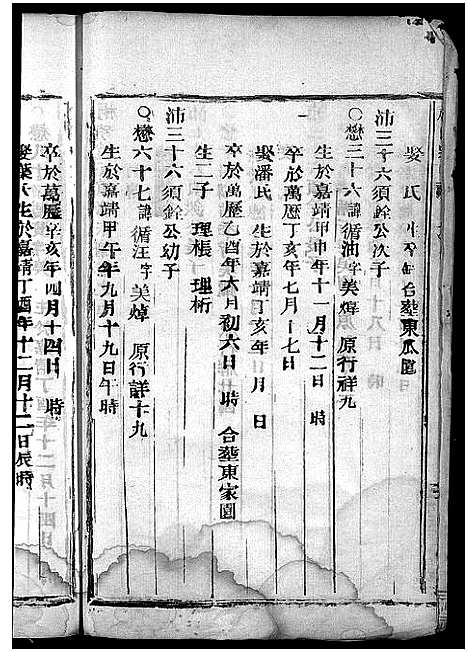 娶 氏 生 卒 合塟東瓜園
沛三十六須銓公次子
○懋三十六諱循油字美煒 原行祥九
生於嘉靖甲申年十一月十二日 時
卒於萬歷丁亥年七月十七日
娶潘氏 生於嘉靖丁亥年 月 日
卒於萬歷乙酉年六月初六日 時 合塟東家園
生二子 理棖 理析
沛三十六須銓公幼子
○懋六十七諱循汪字美焯 原行詳十九
生於嘉靖甲午年九月十九日午時
卒於萬歷辛亥年四月十四日 時
娶葉氏生於嘉靖丁酉年十二月十二日辰時